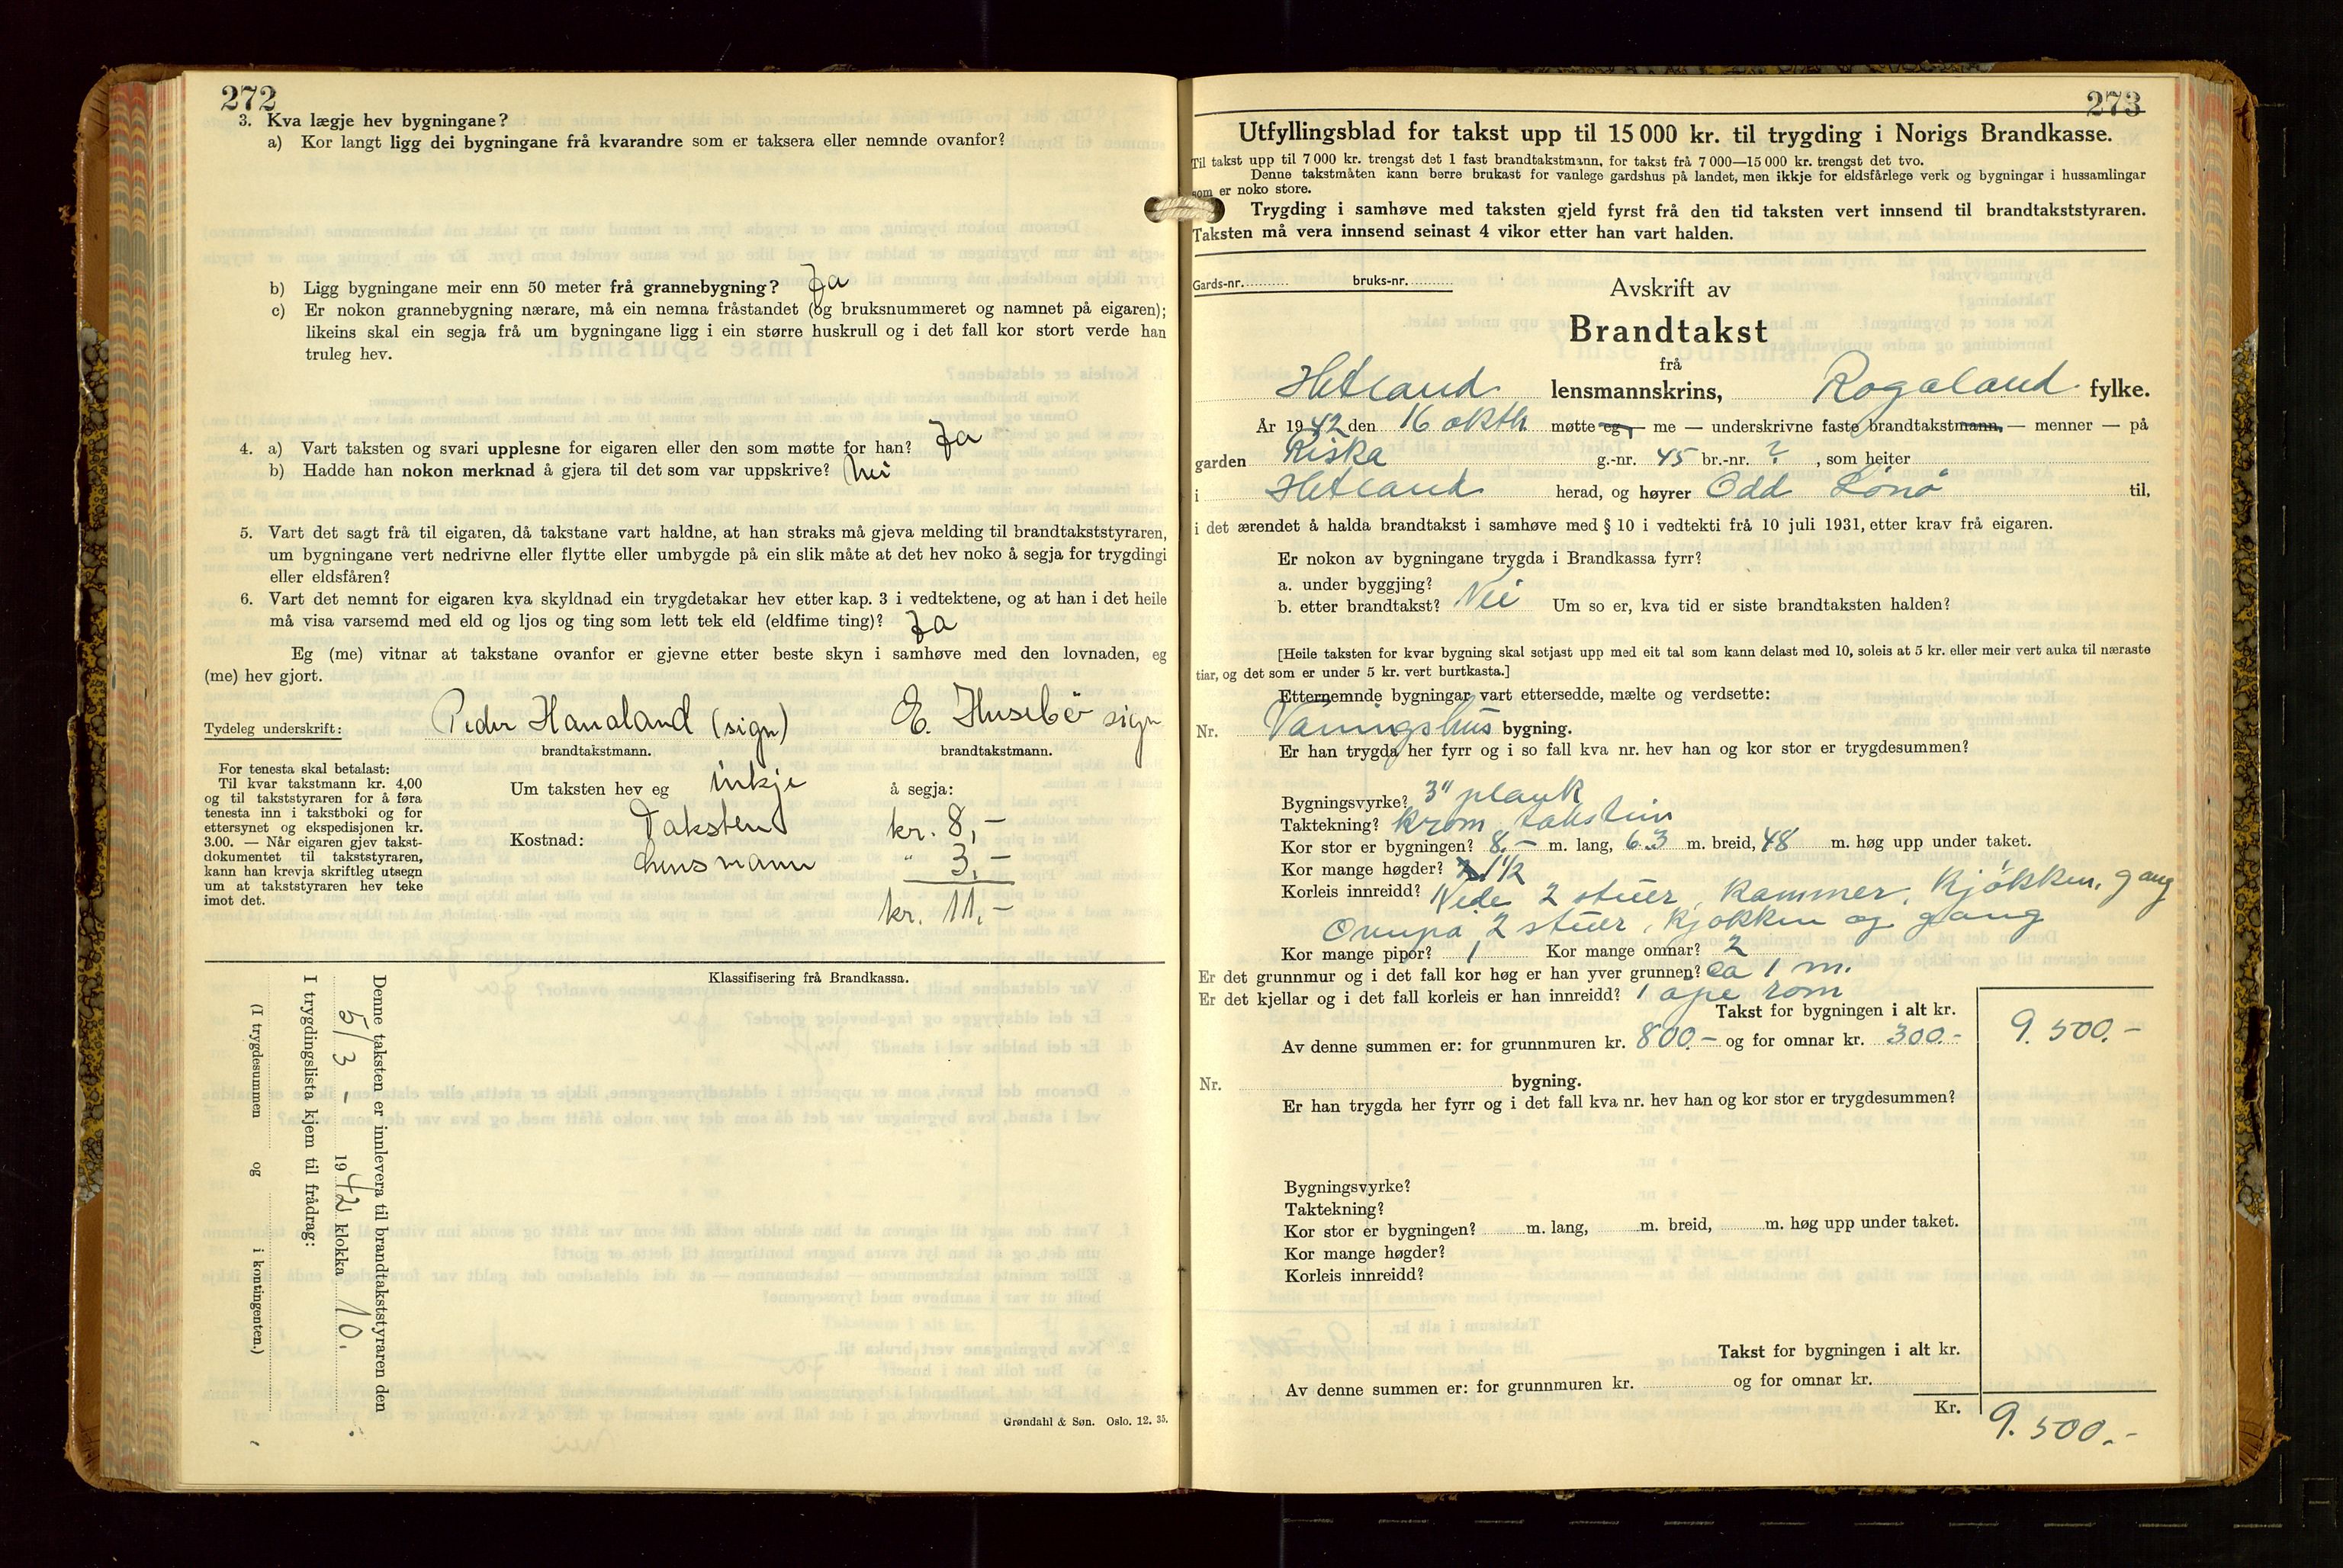 272
3. Kva lægje hev bygningane?
a) Kor langt ligg dei bygningane frå kvarandre som er taksera eller nemnde ovanfor?
b) Ligg bygningane meir enn 50 meter frå grannebygning? Ja
c) Er nokon grannebygning nærare, må ein nemna fråstandet (og bruksnummeret og namnet på eigaren);
likeins skal ein segja frå um bygningane ligg i ein større huskrull og i det fall kor stort verde han
truleg hev.
4. a) Vart taksten og svari upplesne for eigaren eller den som møtte for han? Ja
b) Hadde han nokon merknad å gjera til det som var uppskrive? Nei
5. Vart det sagt frå til eigaren, då takstane vart haldne, at han straks må gjeva melding til brandtakststyraren,
um bygningane vert nedrivne eller flytte eller umbygde på ein slik måte at det hev noko å segja for trygdingi
eller eldsfåren?
6. Vart det nemnt for eigaren kva skyldnad ein trygdetakar hev etter kap. 3 i vedtektene, og at han i det heile
må visa varsemd med eld og ljos og ting som lett tek eld (eldfime ting)? Ja
Eg (me) vitnar at takstane ovanfor er gjevne etter beste skyn i samhøve med den lovnaden, eg
(me) hev gjort.
Tydeleg underskrift: Peder Hanaland (sign) E. Husebø sign
brandtakstmann. brandtakstmann.
For tenesta skal betalast:
Til kvar takstmann kr. 4,00
og til takststyraren for å føra
tenesta inn i takstboki og for
ettersynet og ekspedisjonen kr.
3.00. — Når eigaren gjev takst-
dokumentet til takststyraren,
kann han krevja skriftleg utsegn
um at takststyraren hev teke
imot det.
Um taksten hev eg inkje å segja:
Kostnad: Taksten kr. 8,-
Lensmann " 3,-
kr. 11,-
Klassifisering frå Brandkassa.
Denne taksten er innlevera til brandtakststyraren den
5/3 - 1942 klokka 10.
I trygdingslista kjem til frådrag:
(I trygdesummen og i kontingenten.)
Grøndahl & Søn. Oslo. 12. 35.
273
Utfyllingsblad for takst upp til 15 000 kr. til trygding i Norigs Brandkasse.
Til takst upp til 7 000 kr. trengst det 1 fast brandtakstmann, for takst frå 7 000—15 000 kr. trengst det tvo.
Denne takstmåten kann berre brukast for vanlege gardshus på landet, men ikkje for eldsfårlege verk og bygningar i hussamlingar
som er noko store.
Trygding i samhøve med taksten gjeld fyrst frå den tid taksten vert innsend til brandtakststyraren.
Taksten må vera innsend seinast 4 vikor etter han vart halden.
Gards-nr. bruks-nr.
Avskrift av
Brandtakst
frå
Hetland lensmannskrins, Rogaland fylke.
År 1942 den 16 oktbr møtte eg, — me — underskrivne faste brandtakstmann, — menner — på
garden Riska g.-nr. 45 br.-nr. ? , som heiter
i Hetland herad, og høyrer Odd Lønø til,
i det ærendet å halda brandtakst i samhøve med § 10 i vedtekti frå 10 juli 1931, etter krav frå eigaren.
Er nokon av bygningane trygda i Brandkassa fyrr?
a. under byggjing?
b. etter brandtakst? Nei Um so er, kva tid er siste brandtaksten halden?
[Heile taksten for kvar bygning skal setjast upp med eit tal som kann delast med 10, soleis at 5 kr. eller meir vert auka til næraste
tiar, og det som er under 5 kr. vert burtkasta.]
Etternemnde bygningar vart ettersedde, mælte og verdsette:
Nr. Våningshus bygning.
Er han trygda her fyrr og i so fall kva nr. hev han og kor stor er trygdesummen?
Bygningsvyrke? 3" plank
Taktekning? krom takstein
Kor stor er bygningen? 8.- m. lang, 6.3 m. breid, 48 m. høg upp under taket.
Kor mange høgder? 1 1/2
Korleis innreidd? Nede 2 stuer, kammer, kjøkken, gang
Ovenpå 2 stuer, kjøkken og gang
Kor mange pipor? 1 Kor mange omnar? 2
Er det grunnmur og i det fall kor høg er han yver grunnen? ca 1 m.
Er det kjellar og i det fall korleis er han innreidd? 1 ope rom
Takst for bygningen i alt kr. 9.500.-
Av denne summen er: for grunnmuren kr. 800.- og for omnar kr. 300.-
Nr. bygning.
Er han trygda her fyrr og i det fall kva nr. hev han og kor stor er trygdesummen?
Bygningsvyrke?
Taktekning?
Kor stor er bygningen? m. lang, m. breid, m. høg upp under taket.
Kor mange høgder?
Korleis innreidd?
Takst for bygningen i alt kr.
Av denne summen er: for grunnmuren kr. og for omnar kr.
Kr. 9.500.-